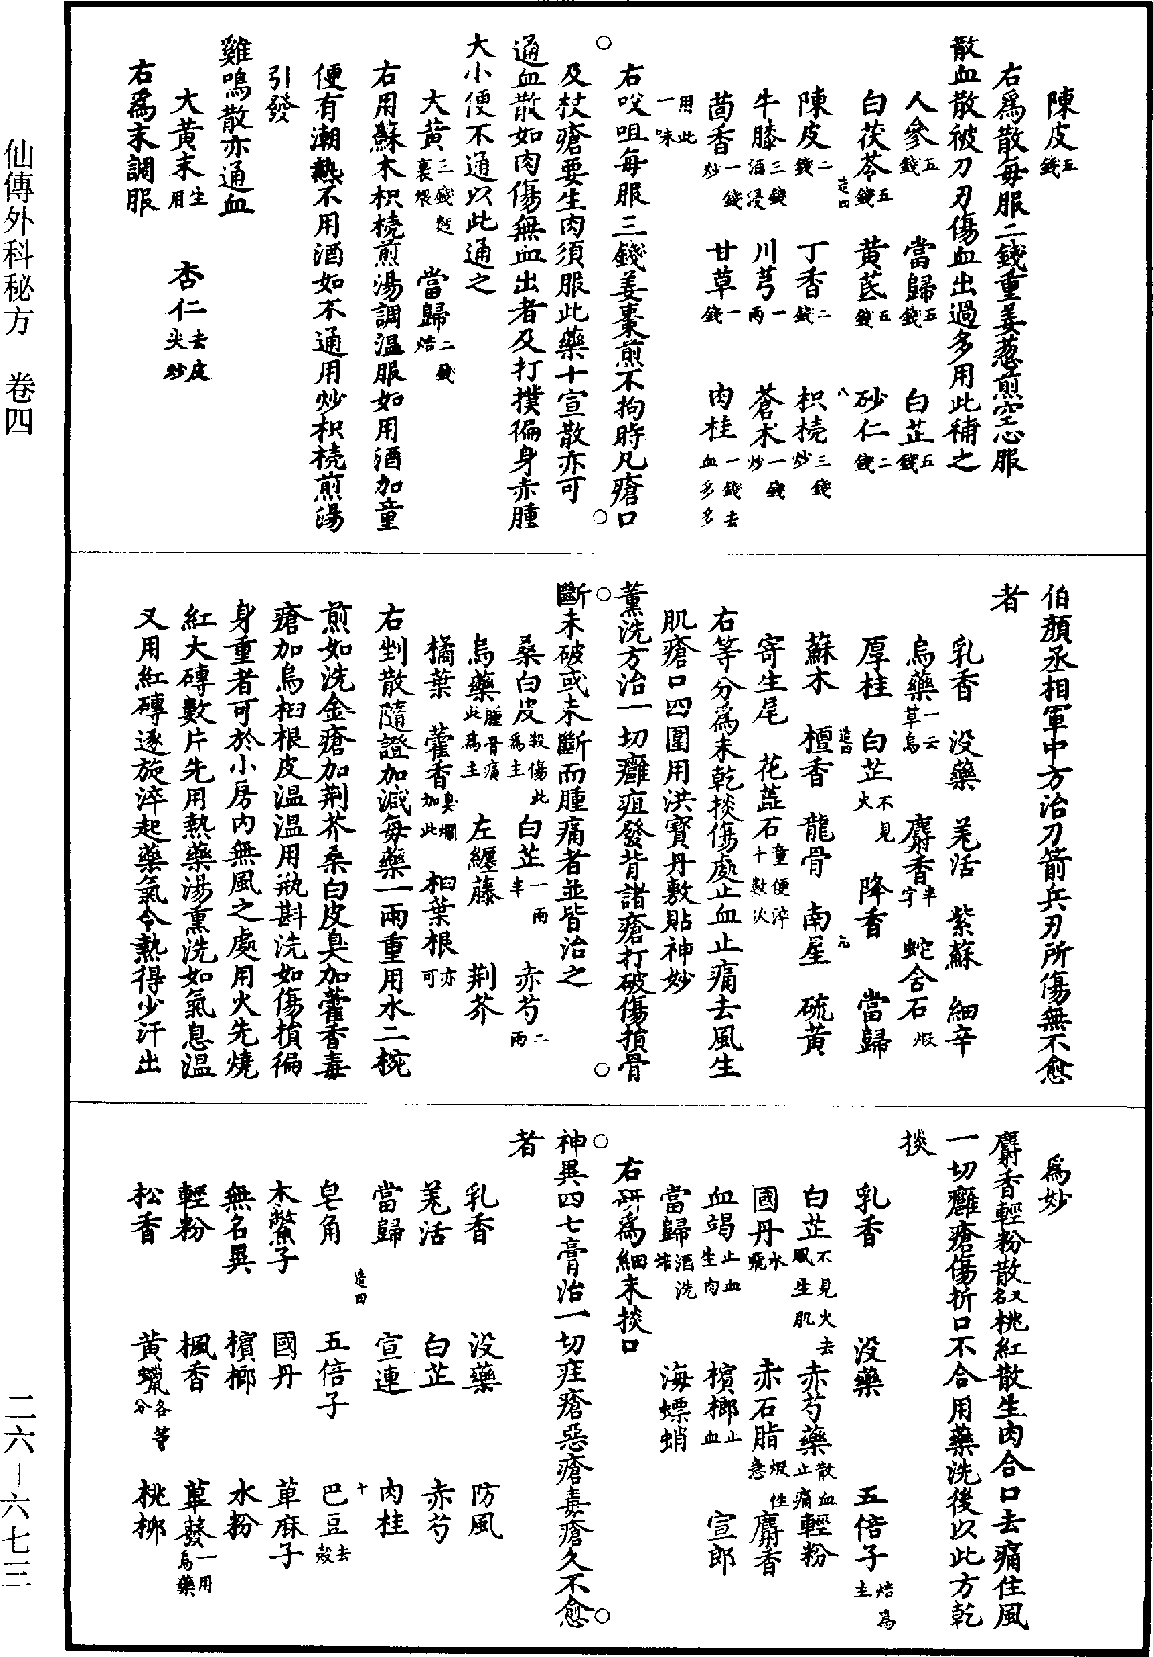 仙傳外科秘方　卷四
二六—六七三
陳皮五錢
右爲散每服二錢重姜葱煎空心服
散血散被刀刃傷血出過多用此補之
人參五錢　當歸五錢　白芷五錢
白茯苓五錢　黃芪五錢　砂仁二錢
陳皮二錢　丁香二錢　枳梡三錢炒
牛膝三錢酒浸　川芎一兩　蒼术一錢炒
茴香一錢炒　甘草一錢　肉桂一錢去血多多
用此一味
右㕮咀每服三錢姜棗煎不拘時凡瘡口
及杖瘡要生肉須服此藥十宣散亦可
通血散如肉傷無血出者及打撲徧身赤腫
大小便不通以此通之
大黃三錢麪裹煨　當歸二錢焙
右用蘇木枳梡煎湯調温服如用酒加童
便有潮熱不用酒如不通用炒枳梡煎湯
引發
雞鳴散亦通血
大黃末生用　杏仁去皮尖炒
右爲末調服
伯顏丞相軍中方治刀箭兵刃所傷無不愈
者
乳香　没藥　羌活　紫蘇　細辛
烏藥一云草烏　麝香半字　蛇含石煅
厚桂　白芷不見火　降香　當歸
蘇木　檀香　龍骨　南星　硫黃
寄生尾　花蕋石童便淬十數次
右等分爲末乾掞傷處止血止痛去風生
肌瘡口四圍用洪寳丹敷貼神妙
薰洗方治一切癰疽發背諸瘡打破傷損骨
斷未破或未斷而腫痛者並皆治之
桑白皮殺傷此爲主　白芷一兩半　赤芍二兩
烏藥腫骨痛此爲主　左纏藤　荆芥
橘葉　藿香臭爛加此　桕葉根亦可
右剉散隨證加減每藥一兩重用水二椀
煎如洗金瘡加荆芥桑白皮臭加藿香毒
瘡加烏桕根皮温温用瓶斟洗如傷損徧
身重者可於小房内無風之處用火先燒
紅大磚數片先用熱藥湯熏洗如氣息温
又用紅磚逐旋淬起藥氣令熱得少汗出
爲妙
麝香輕粉散又名桃紅散生肉合口去痛住風
一切癰瘡傷折口不合用藥洗後以此方乾
掞
乳香　没藥　五倍子焙爲主
白芷不見火去風生肌　赤芍藥散血止痛　輕粉
國丹水飛　赤石脂煅性急　麝香
血竭止血生肉　檳榔止血　宣郎
當歸酒洗焙　海螵蛸
右研爲細末掞口
神異四七膏治一切疰瘡惡瘡毒瘡久不愈
者
乳香　没藥　防風
羌活　白芷　赤芍
當歸　宣連　肉桂
皂角　五倍子　巴豆去殼
木鱉子　國丹　草麻子
無名異　檳榔　水粉
輕粉　楓香　蓽蕟一用烏藥
松香　黃蠟各等分　桃柳